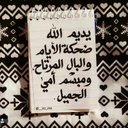 يديم الله
ضحكة الأيام
والبال المرتاح
ومبسم أمي
الجميل